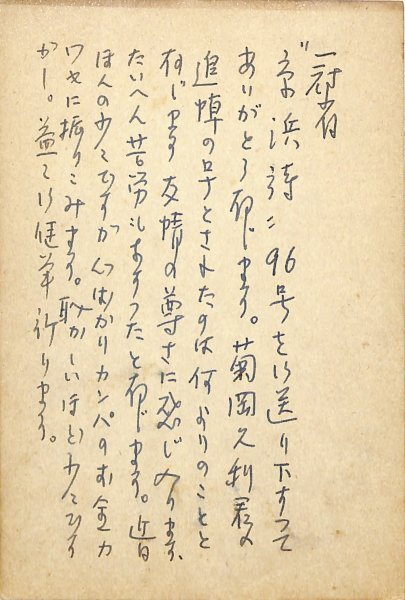 冠省
"京浜詩" 96号を御送り下すって
ありがとう存じます。菊岡久利君の
追悼の号とされたのは何よりのことと
存じます 友情の尊さに感じ入ります、
たいへん苦労もあすったと存じます。近日
ほんの少々ですが心ばかりカンパのお金カ
ワセに振りこみます。恥かしいほど少々です
が―。益々御健筆祈ります。